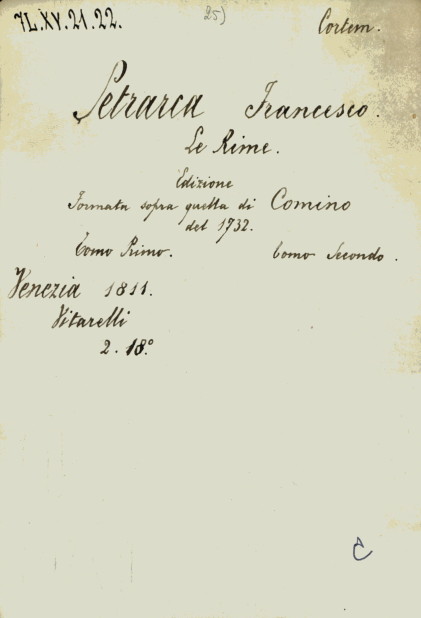 7L.XV.21.22. 25) Cortem.
Petrarca Francesco.
Le Rime.
Edizione
Formata sopra quella di Comino
del 1732.
Tomo Primo. Tomo Secondo.
Venezia 1811.
Vitarelli
2. 18.°
C